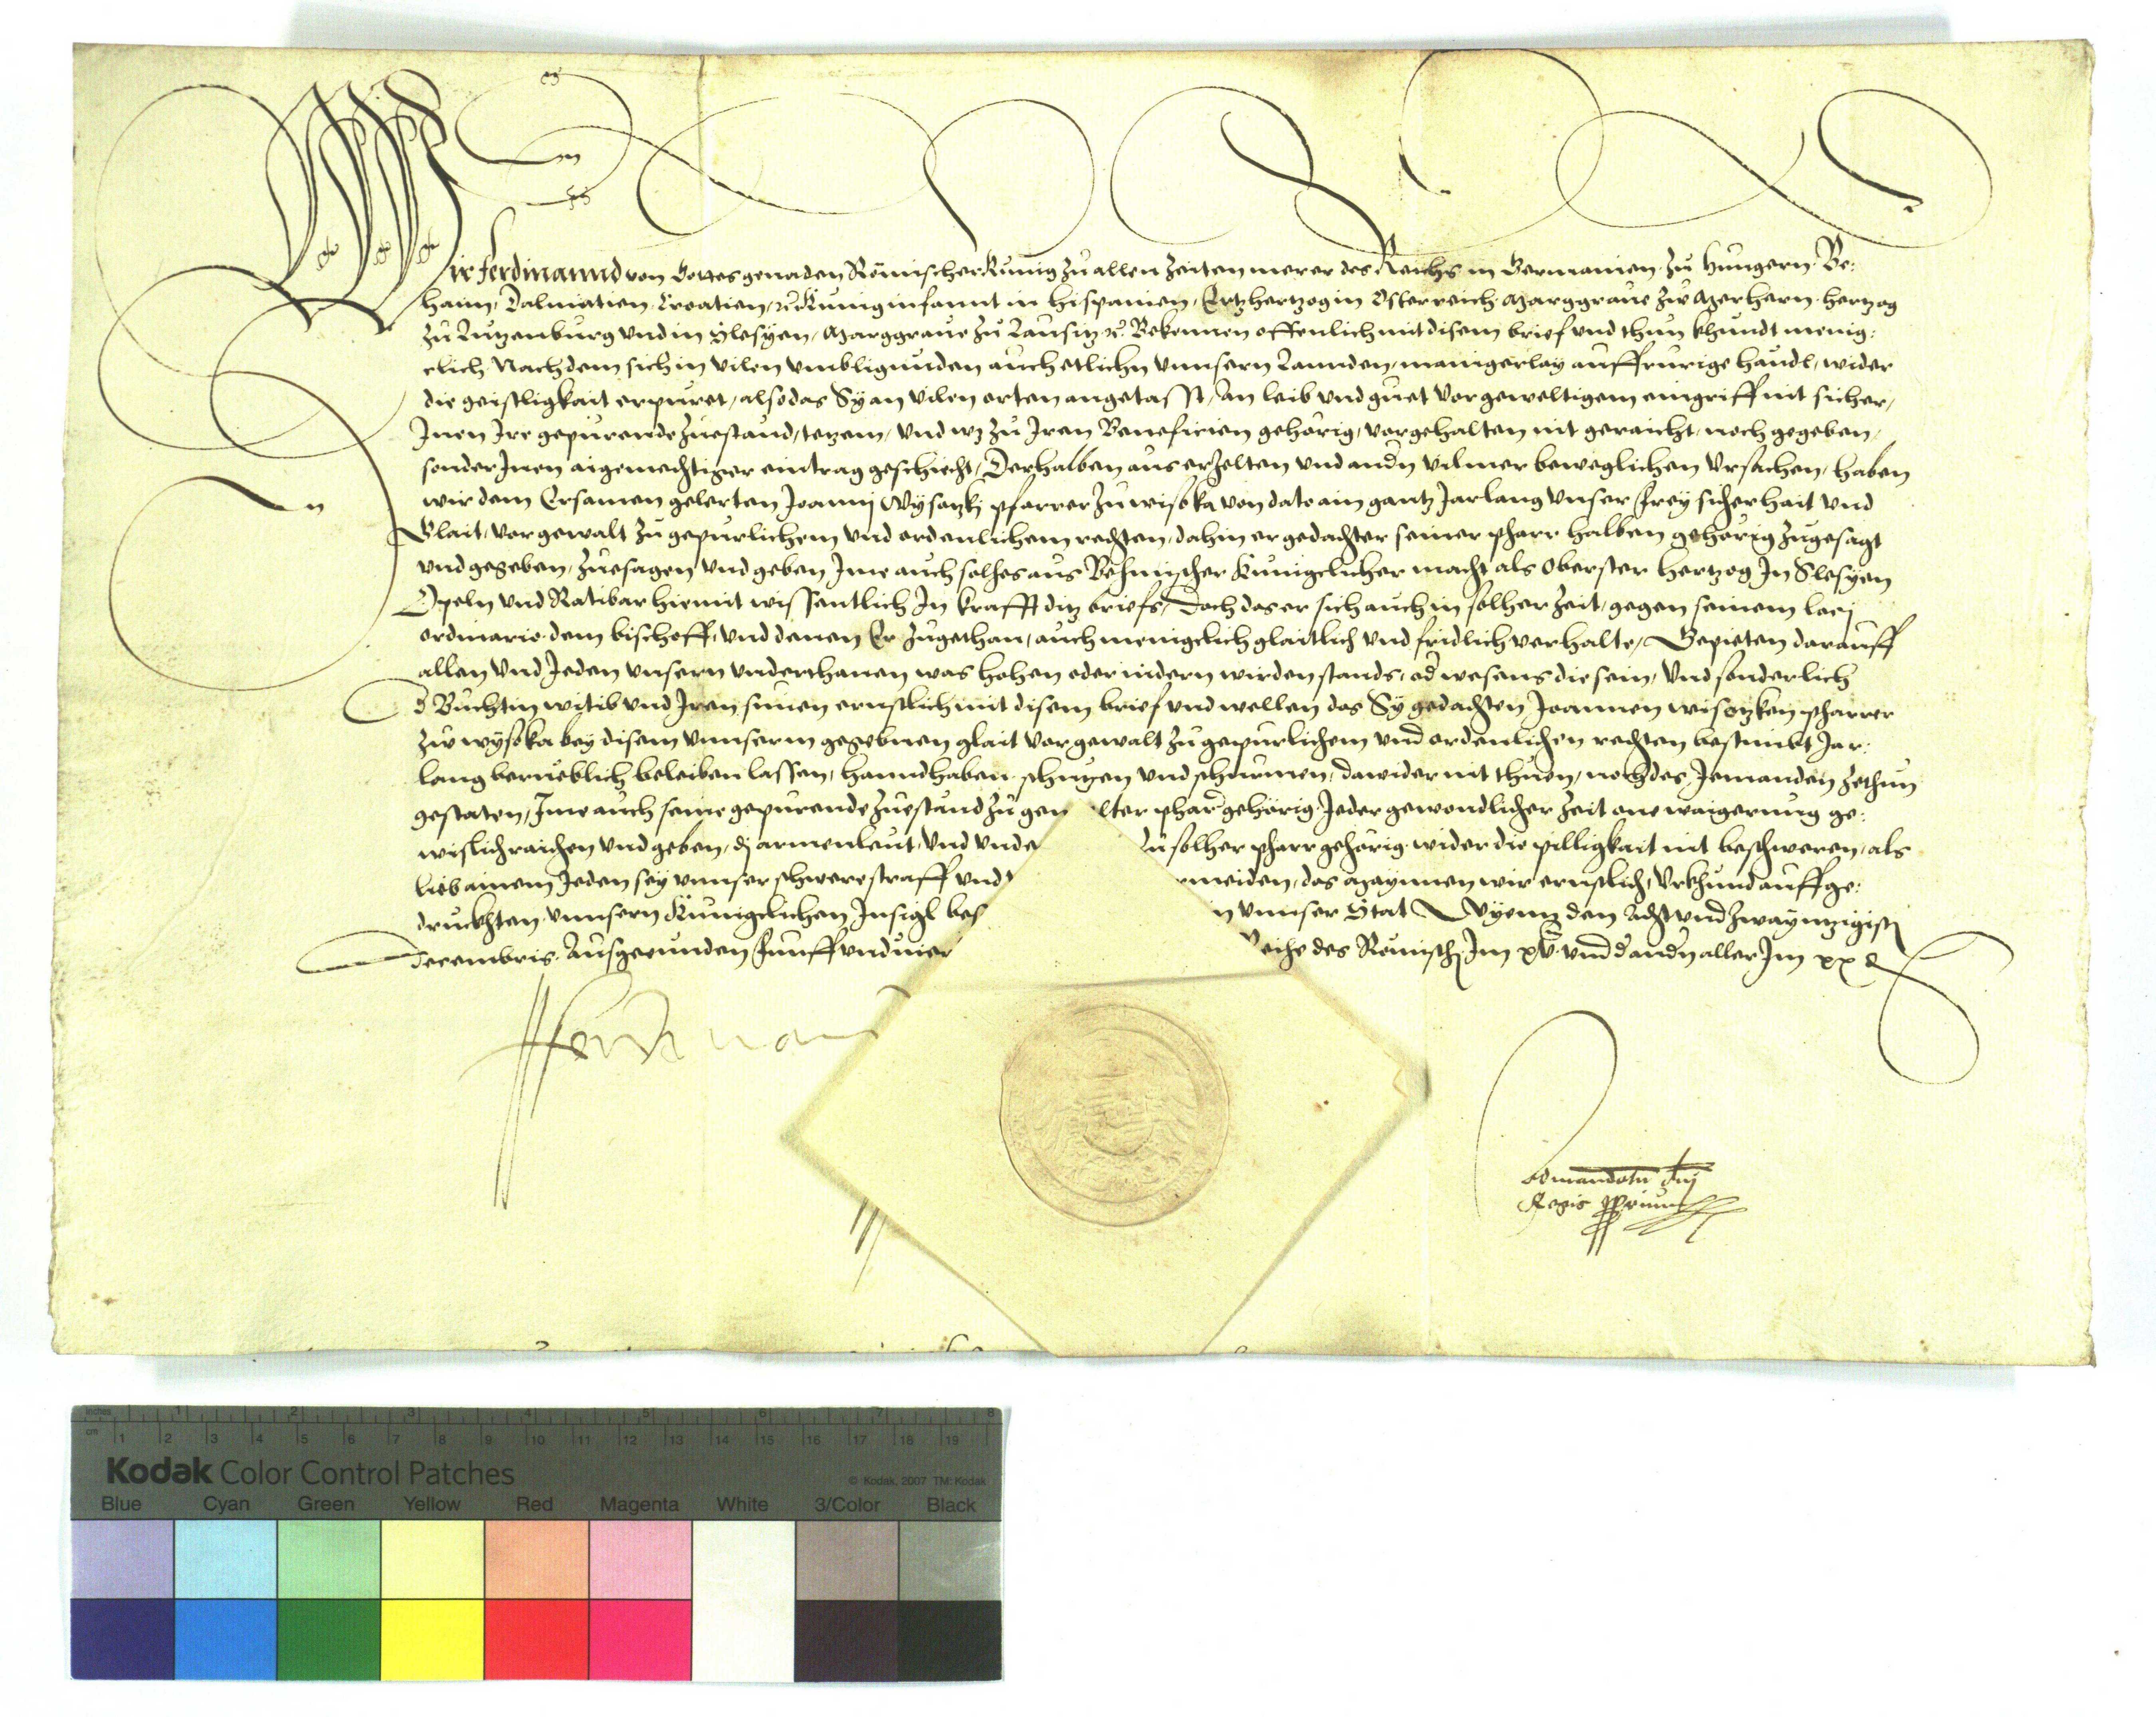 Wir Ferdinannd von Gottes genaden Römischer Kunig zu allen Zeiten merer des Reichs in Germanien zu Hungern Be:
haim, Dalmatien Croatien, Kunig infannt in Hispanien, Ertzhertzog in Osterreich Marggraue zw Merhern hertzog
zu Lutzenburg und in Slesyen, Marggraue zu Lausitz Bekennen offenlich mit disem brief und thun khundt menig:
clich Nachdem sich in vilen umbligunden auch etlichn unnsern Lannden, manigerlay auffrurige handl, wider
die geistligkait erpuret, also das Sy an vilen orten angetasst, An leib und guet vor geweltigem eingriff nit sicher,
Inen Ire gepurende Zuestand, tetzem, und wz zu Iren Beneficien gehörig, vorgehalten nit geraicht, noch gegeben,
sonder Inen aigemechtiger eintrag geschiecht, Derhalben aus erzelten und andn vilmer beweglichen Ursachen, haben
wir dem Ersamen gelerten Joannj Wysotzkj pfarrer zu wisoka von dato ain gantz Jar lang Unser frey sicherhait und
Glait, vor gewalt zu gepurlichem und ordenlichem rechten, dahin er gedachter seiner pharr halben gehörig zugesagt
und gegeben, zuesagen und geben Ime auch solhes aus Behmischer Kunigclicher macht als Oberster Hertzog In Slesyen
Opeln und Ratibar hiemit wissentlich In krafft ditz briefs, Doch das er sich auch in solher Zeit, gegen seinem locj
ordinario dem bischoff, und denen Er zugethan, auch menigclich glaitlich und fridlich verhalte, Gepieten darauff
allen und Jeden unsern underthanen was hohen oder nidern wirden stands, od wesens die sein, Und sonderlich
d Buchtin witib und Iren sunen ernstlich mit disem brief und wellen das Sy gedachten Joannen wisotzken pharrer
zw wysoka bey disem unnserm gegebnen glait vor gewalt zu gepurlichem und ordenlichen rechten bestimbt Jar:
lang berueblich beleiben lassen, hanndhaben schutzen und schirmen, dawider nit thuen, noch des Jemanden zethun
gestaten, Ime auch seine gepurende Zuestand zu gen lter pharr gehörig Jeder gewondlicher Zeit one waigerung ge:
wislich raichen und geben, dj armenleut, Und unde zu solher pharr gehörig wider die pilligkait nit beschweren, als
lieb ainem Jeden sey unnser schwere straff und rmeiden, das Maynnen wir ernstlich, Urkhund auffge:
druckhten unnsern Kunigclichen Insigl bes in unnser Stat Wyenn den Acht und zwayntzigistn
Decembris Ausgeenden funff und vier Reiche des Römischn Im xv und d andn aller Im xx
Ferdinand
Ad mandatu dnj
Regis pprium